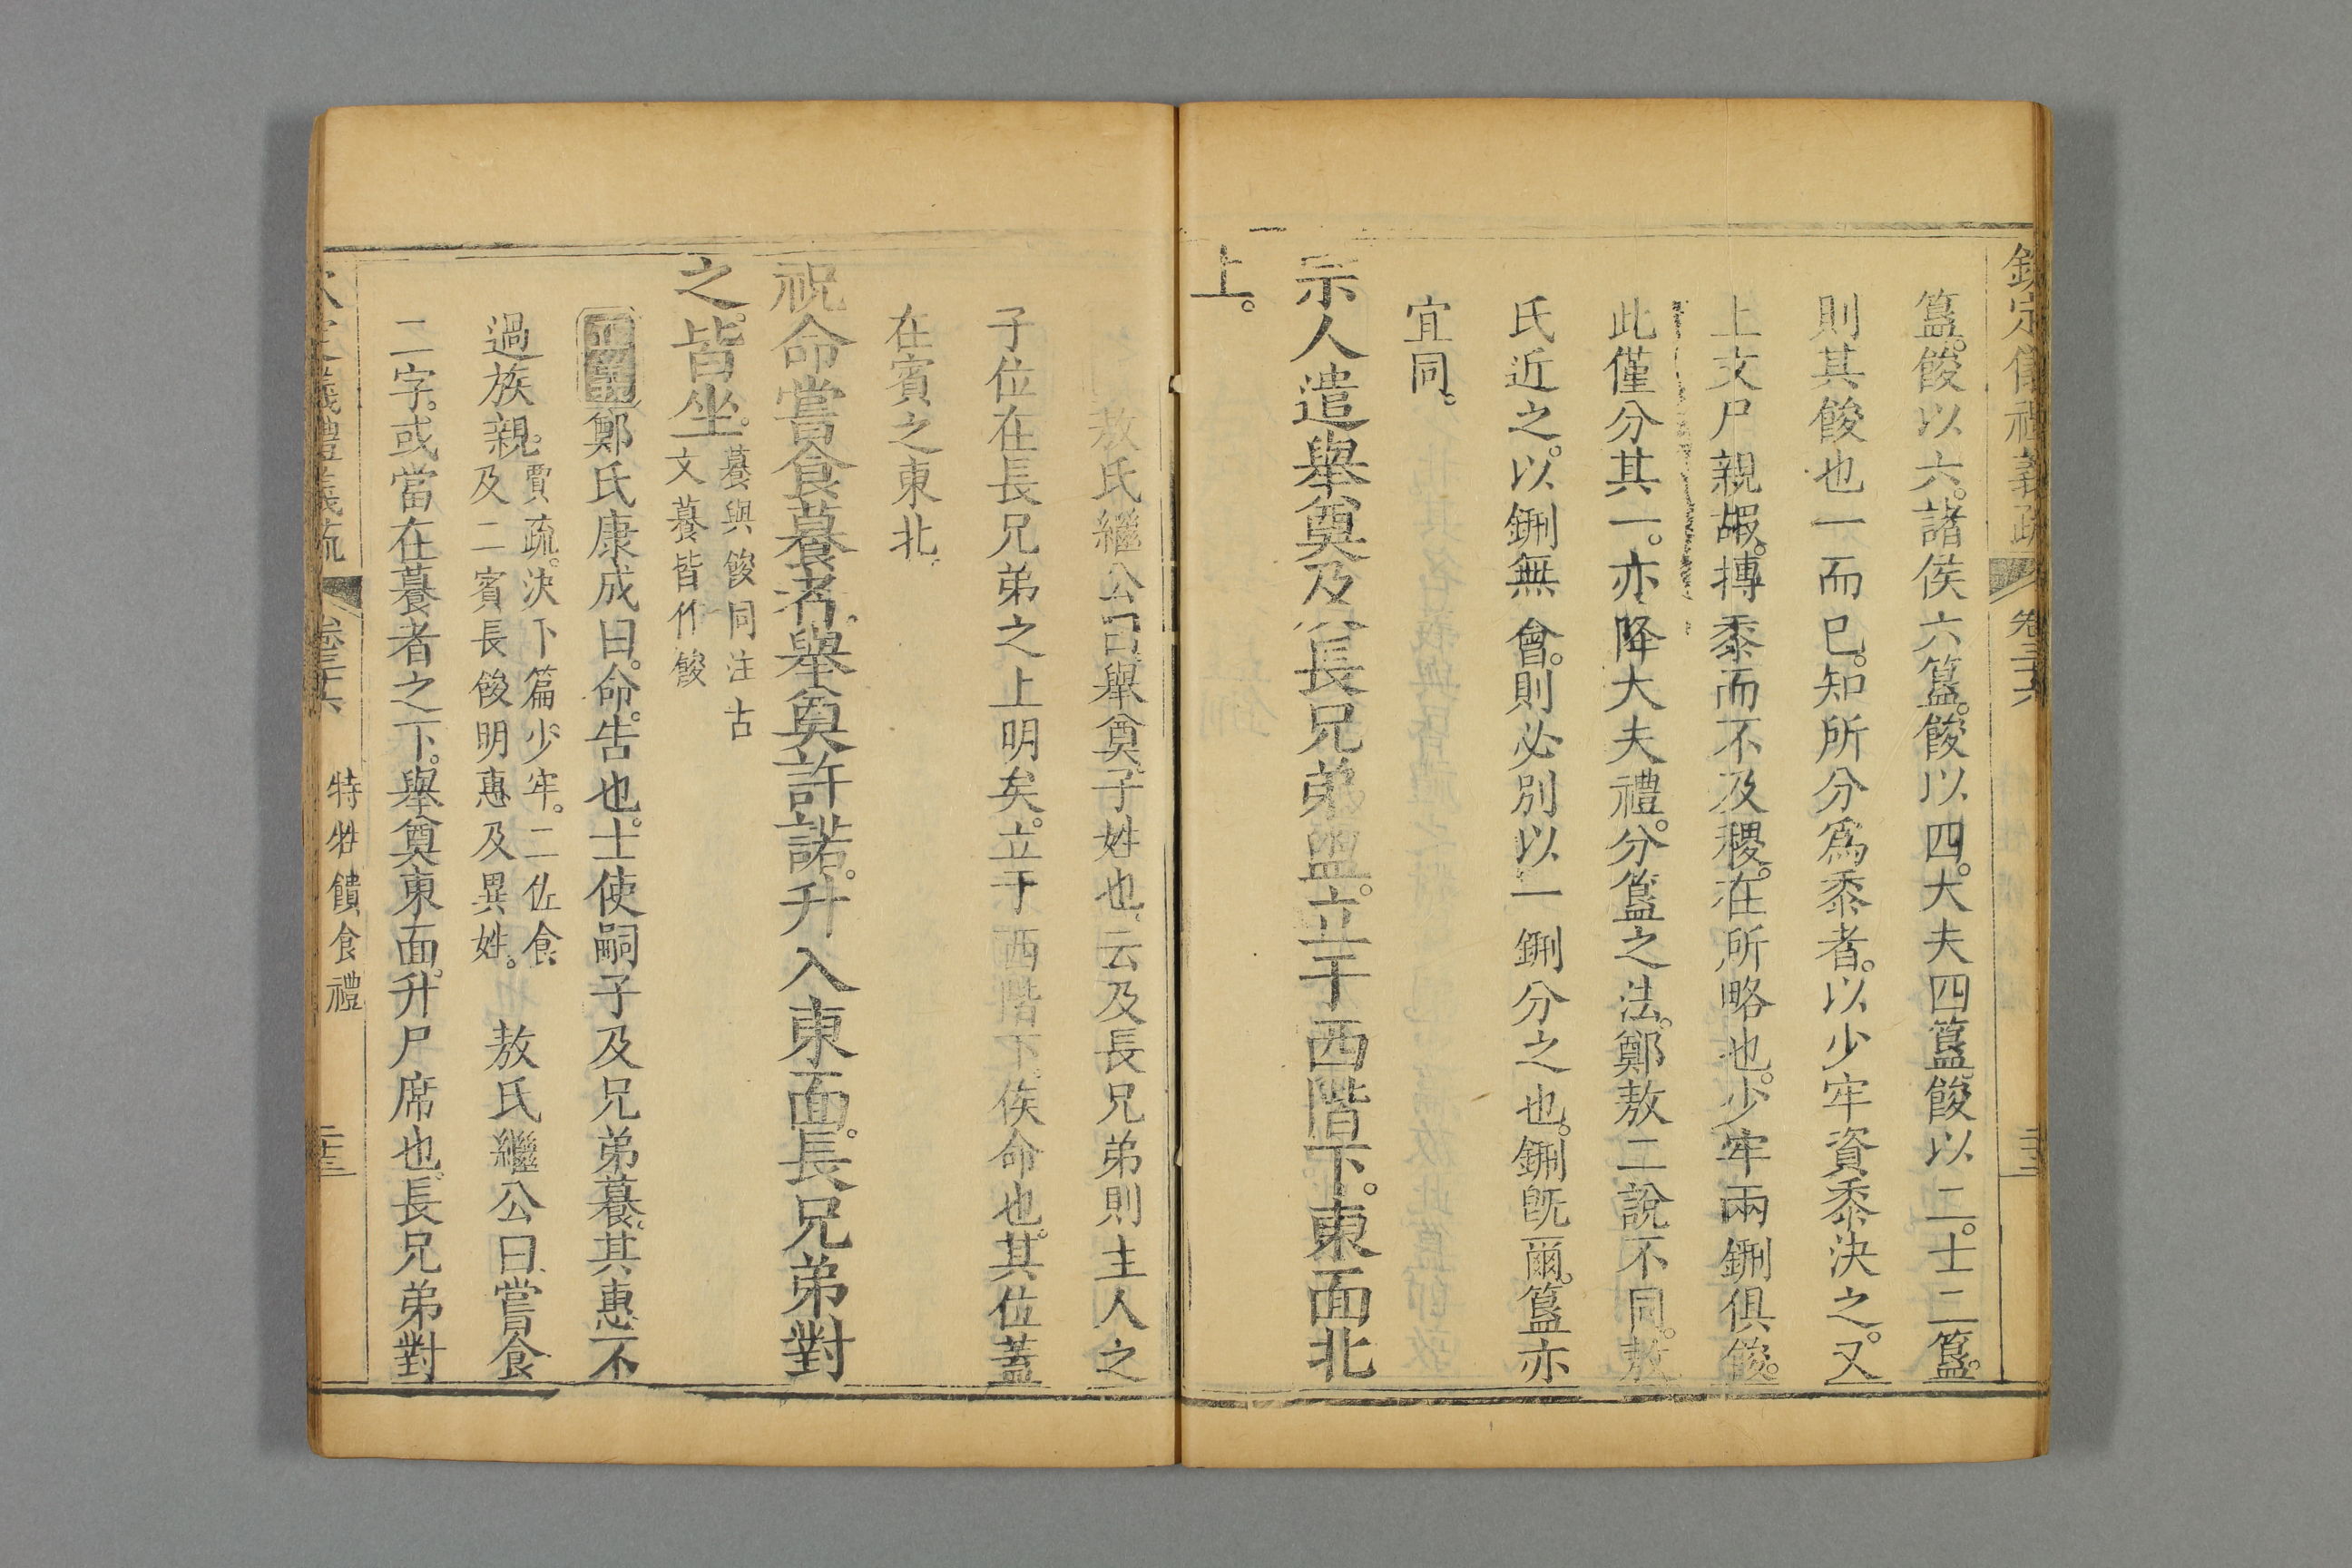 欽定儀禮義疏 卷三十六
簋。餕以六。諸侯六簋。餕以四。大夫四簋。餕以二。士二簋。
則其餕也一而已。知所分爲黍者。以少牢資黍決之。又
上文尸親嘏。摶黍而不及稷。在所略也。少牢兩鉶俱餕。
此僅分其一。亦降大夫禮。分簋之法。鄭敖二說不同。敖
氏近之。以鉶無會。則必別以一鉶分之也。鉶旣爾。簋亦
宜同。
宗人遣舉奠及長兄弟盥。立于西階下。東面北
上。
敖氏繼公曰舉奠。子姓也。云及長兄弟則主人之
子位在長兄弟之上明矣。立于西階下俟命也。其位蓋
在賓之東北
祝命嘗食䕩者。舉奠許諾。升入東面。長兄弟對
之。皆坐。䕩與餕同注古
文䕩皆作餕
正義鄭氏康成曰。命。告也。士使嗣子及兄弟䕩。其惠不
過族親。賈疏。決下篇少牢。二佐食
及二賓長餕明惠及異姓。 敖氏繼公曰嘗食
二字。或當在䕩者之下。舉奠東面。升尸席也。長兄弟對
卷三十六 特牲饋食禮